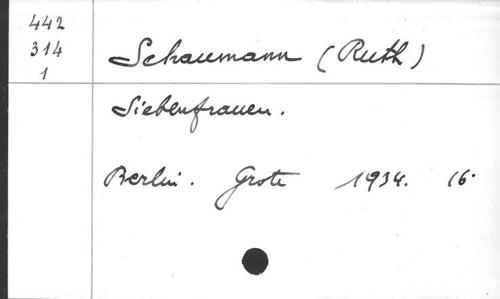 442
314
1
Schaumann (Ruth)
Siebenfrauen.
Berlin. Grote 1934. 16°